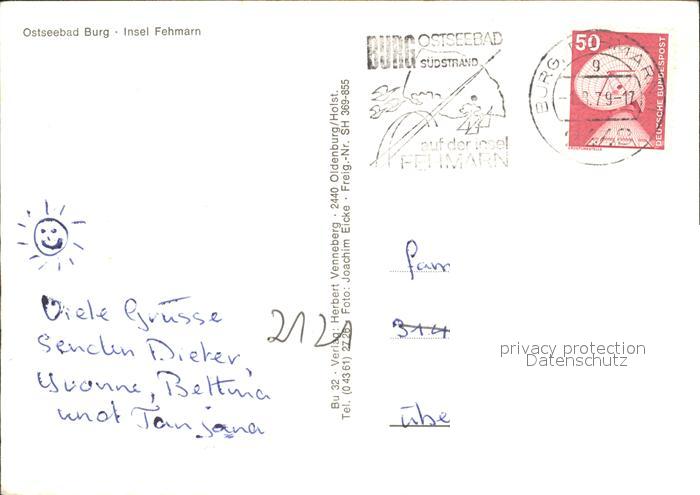 Ostseebad Burg · Insel Fehmarn
BURG OSTSEEBAD
SÜDSTRAND
auf der Insel
FEHMARN
50
DEUTSCHE BUNDESPOST
9
79-17
Bu 32 · Verlag: Herbert Venneberg · 2440 Oldenburg/Holst.
Tel. (04361) 2726 · Foto: Joachim Eicke · Freig.-Nr. SH 369-855
Viele Grüsse
senden Dieter,
Yvonne, Bettina
und Tanjana
212
Fam
314
übe
privacy protection
Datenschutz